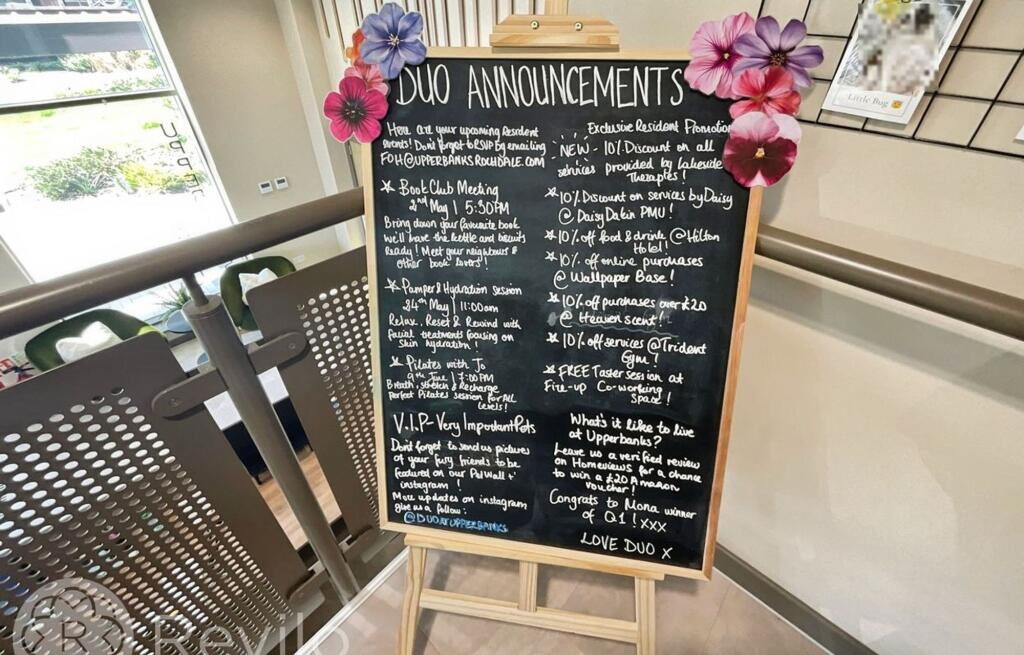 DUO ANNOUNCEMENTS
Here are your upcoming Resident
events! Don't forget to RSVP by emailing
FOH@UPPERBANKSROCHDALE.COM
Book Club Meeting
2nd May | 5:30PM
Bring down your favourite book
we'll have the kettle and biscuits
Ready! Meet your neighbours &
other book lovers!
Pamper & Hydration session
24th May | 11:00am
Relax, Reset & Rewind with
facial treatments focusing on
skin hydration!
Pilates with Jo
9th June | 7:00PM
Breath, stretch & Recharge
Perfect Pilates session for ALL
levels!
V.I.P - Very Important Pets
Don't forget to send us pictures
of your furry friends to be
featured on our Pet Wall +
instagram!
More updates on instagram
give us a follow:
@DUOATUPPERBANKS
Exclusive Resident Promotion
-NEW- 10% Discount on all
services provided by Lakeside
Therapies!
10% Discount on services by Daisy
@ Daisy Dakin PMU!
10% off food & drink @ Hilton
Hotel!
10% off online purchases
@ Wallpaper Base!
10% off purchases over £20
@ Heaven scent!
10% off services @ Trident
Gym!
FREE Taster session at
Fire-up Co-working
Space!
What's it like to live
at Upperbanks?
Leave us a verified review
on Homeviews for a chance
to win a £20 Amazon
voucher!
Congrats to Mona winner
of Q1! xxx
LOVE DUO X
Little Bug
UPPER
R
Revilo